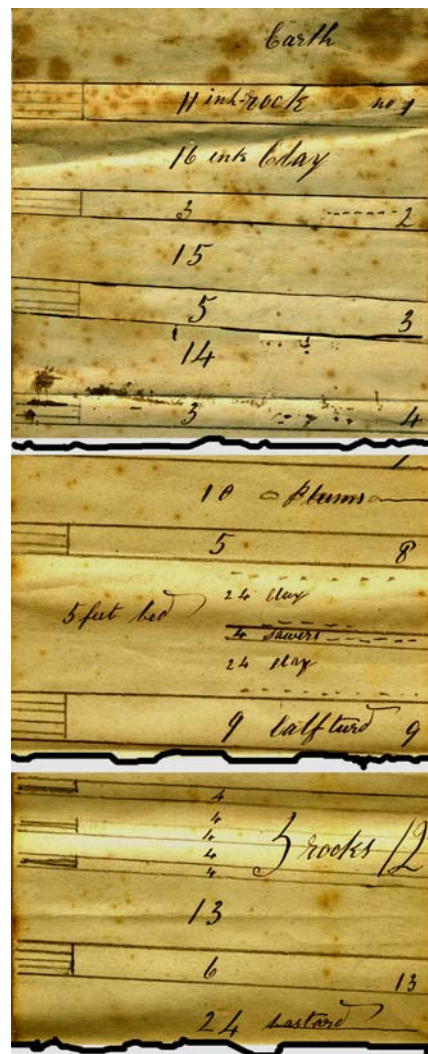 Earth
11 inh rock no 1
16 inh Clay
3 2
15
5 3
14
3 4
10 Plums
5 8
24 Clay
5 feet bed
4 sawers
24 Clay
9 Calf turd 9
4
4
4 3 rocks 12
4
4
13
6 13
24 bastard